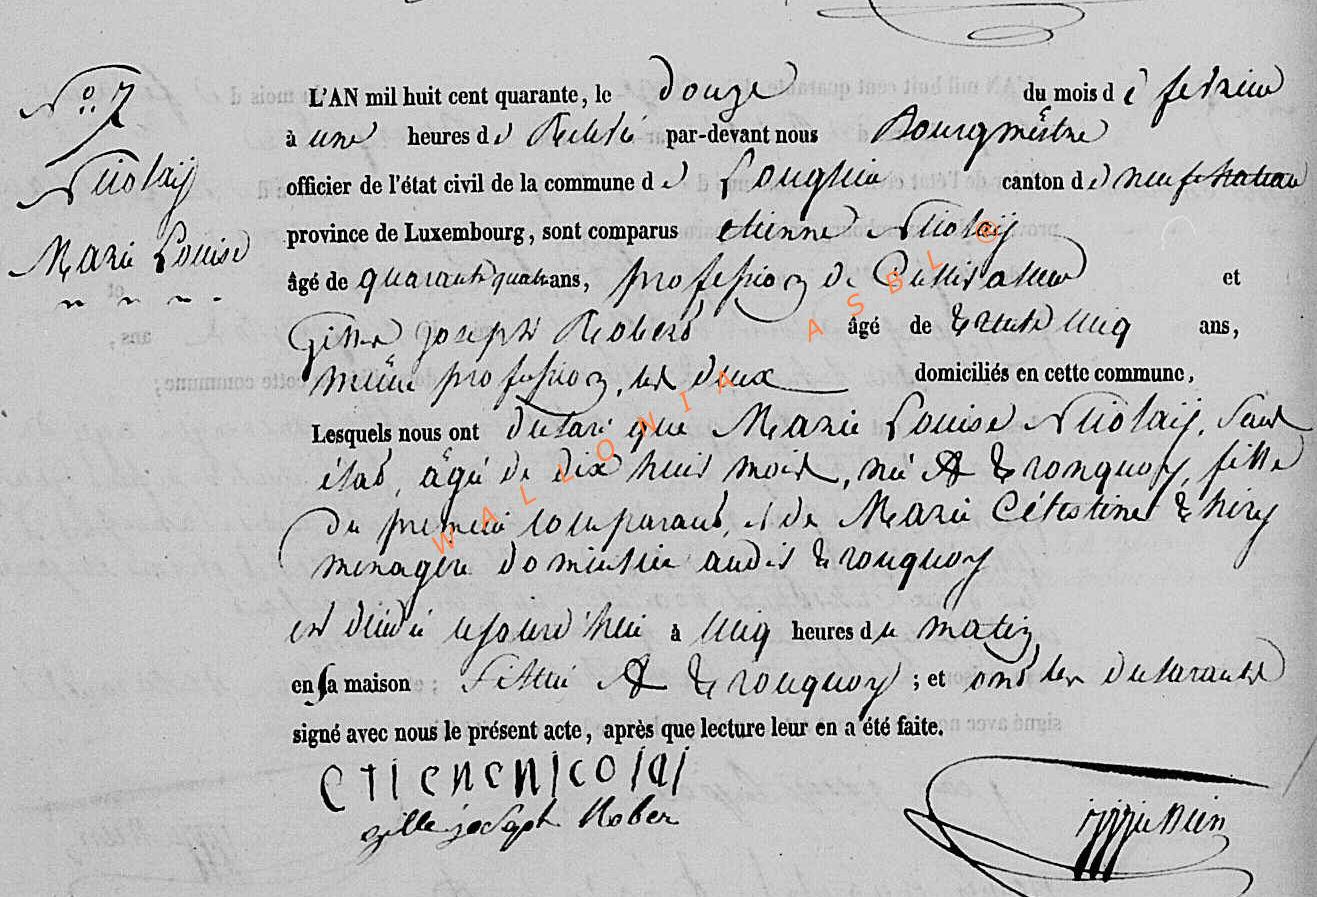 N° 7
Nicolaÿ
Marie Louise
L'AN mil huit cent quarante, le douze du mois de fevrier
à une heures de Relevé par-devant nous Bourgmêstre
officier de l'état civil de la commune de Longlier canton de neufchateau
province de Luxembourg, sont comparus etienne Nicolaÿ
âgé de quarante quatre ans, profession de Cultivateur et
Gille joseph Robert âgé de trente cinq ans,
même profession, les deux domiciliés en cette commune,
Lesquels nous ont déclaré que Marie Louise Nicolaÿ, sans
état, âgé de dix huit mois, né A tronquoy, fille
du premier comparant, et de Marie Célestine thiry
menagere domiciliée audit tronquoy
est décédé cejourd'hui à cinq heures du matin
en sa maison sittuée A tronquoy ; et ont les declarants
signé avec nous le présent acte, après que lecture leur en a été faite.
etienenicolai
gille joseph Rober
WALLONIA ASBL ©